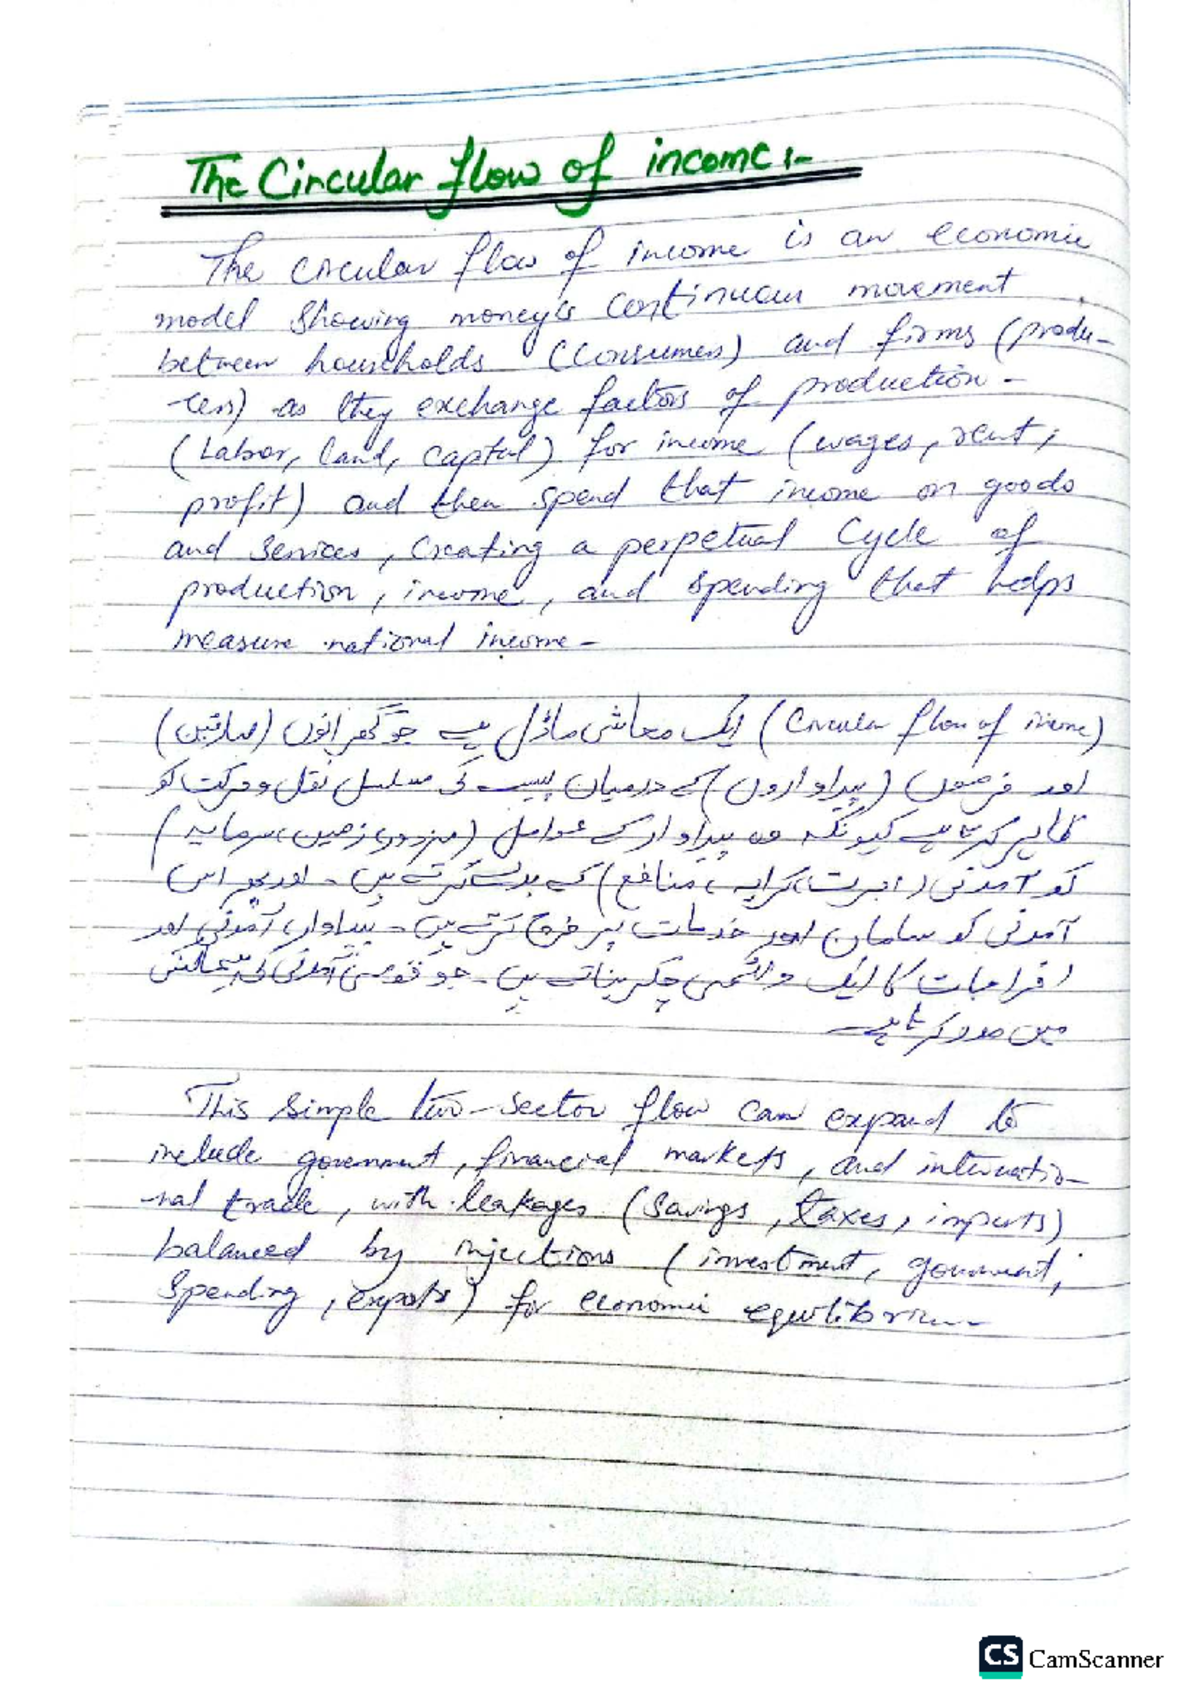 The Circular flow of income:-
The circular flow of income is an economic
model showing money's continuous movement
between households (consumers) and firms (produ-
-cers) as they exchange factors of production -
(Labor, land, capital) for income (wages, rent,
profit) and then spend that income on goods
and services, creating a perpetual cycle of
production, income, and spending that helps
measure national income -
(Circular flow of income) ایک معاشی ماڈل ہے جو گھرانوں (صارفین)
اور فرموں (پیداواروں) کے درمیان پیسے کی مسلسل نقل و حرکت کو
ظاہر کرتا ہے کیونکہ وہ پیداوار کے عوامل (مزدور، زمین، سرمایہ)
کو آمدنی (اجرت، کرایہ، منافع) کے بدلے کرتے ہیں۔ اور پھر اس
آمدنی کو سامان اور خدمات پر خرچ کرتے ہیں۔ پیداوار، آمدنی اور
اخراجات کا ایک دائمی چکر بناتے ہیں۔ جو قومی آمدنی کی پیمائش
میں مدد کرتا ہے
This simple two-sector flow can expand to
include government, financial markets, and internatio-
-nal trade, with leakages (savings, taxes, imports)
balanced by injections (investment, government,
spending, exports) for economic equilibrium-
CS CamScanner